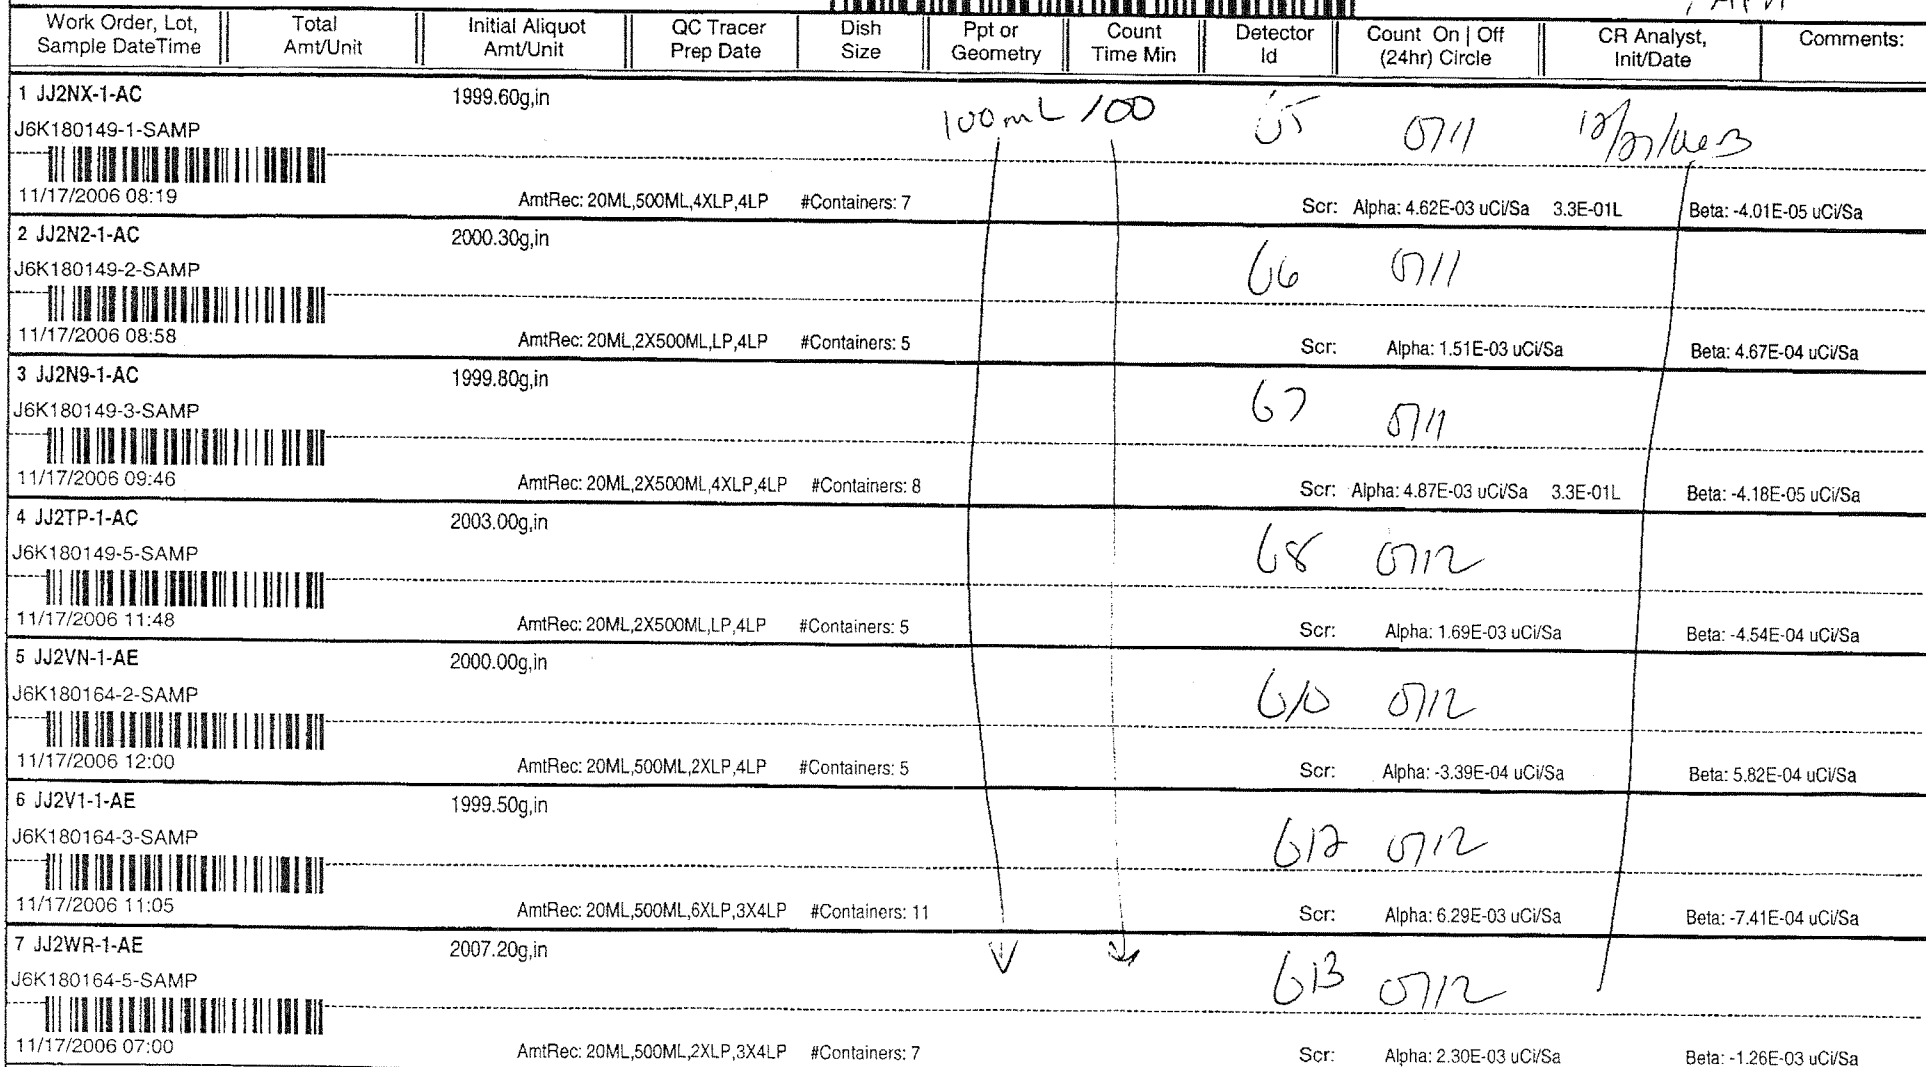 Work Order, Lot, Sample DateTime
Total Amt/Unit
Initial Aliquot Amt/Unit
QC Tracer Prep Date
Dish Size
Ppt or Geometry
Count Time Min
Detector Id
Count On | Off (24hr) Circle
CR Analyst, Init/Date
Comments:
1 JJ2NX-1-AC 1999.60g,in
J6K180149-1-SAMP 100mL 100 G5 0711
11/17/2006 08:19 AmtRec: 20ML,500ML,4XLP,4LP #Containers: 7 Scr: Alpha: 4.62E-03 uCi/Sa 3.3E-01L Beta: -4.01E-05 uCi/Sa
2 JJ2N2-1-AC 2000.30g,in
J6K180149-2-SAMP G6 0711
11/17/2006 08:58 AmtRec: 20ML,2X500ML,LP,4LP #Containers: 5 Scr: Alpha: 1.51E-03 uCi/Sa Beta: 4.67E-04 uCi/Sa
3 JJ2N9-1-AC 1999.80g,in
J6K180149-3-SAMP G7 0711
11/17/2006 09:46 AmtRec: 20ML,2X500ML,4XLP,4LP #Containers: 8 Scr: Alpha: 4.87E-03 uCi/Sa 3.3E-01L Beta: -4.18E-05 uCi/Sa
4 JJ2TP-1-AC 2003.00g,in
J6K180149-5-SAMP G8 0712
11/17/2006 11:48 AmtRec: 20ML,2X500ML,LP,4LP #Containers: 5 Scr: Alpha: 1.69E-03 uCi/Sa Beta: -4.54E-04 uCi/Sa
5 JJ2VN-1-AE 2000.00g,in
J6K180164-2-SAMP G10 0712
11/17/2006 12:00 AmtRec: 20ML,500ML,2XLP,4LP #Containers: 5 Scr: Alpha: -3.39E-04 uCi/Sa Beta: 5.82E-04 uCi/Sa
6 JJ2V1-1-AE 1999.50g,in
J6K180164-3-SAMP G12 0712
11/17/2006 11:05 AmtRec: 20ML,500ML,6XLP,3X4LP #Containers: 11 Scr: Alpha: 6.29E-03 uCi/Sa Beta: -7.41E-04 uCi/Sa
7 JJ2WR-1-AE 2007.20g,in
J6K180164-5-SAMP G13 0712
11/17/2006 07:00 AmtRec: 20ML,500ML,2XLP,3X4LP #Containers: 7 Scr: Alpha: 2.30E-03 uCi/Sa Beta: -1.26E-03 uCi/Sa